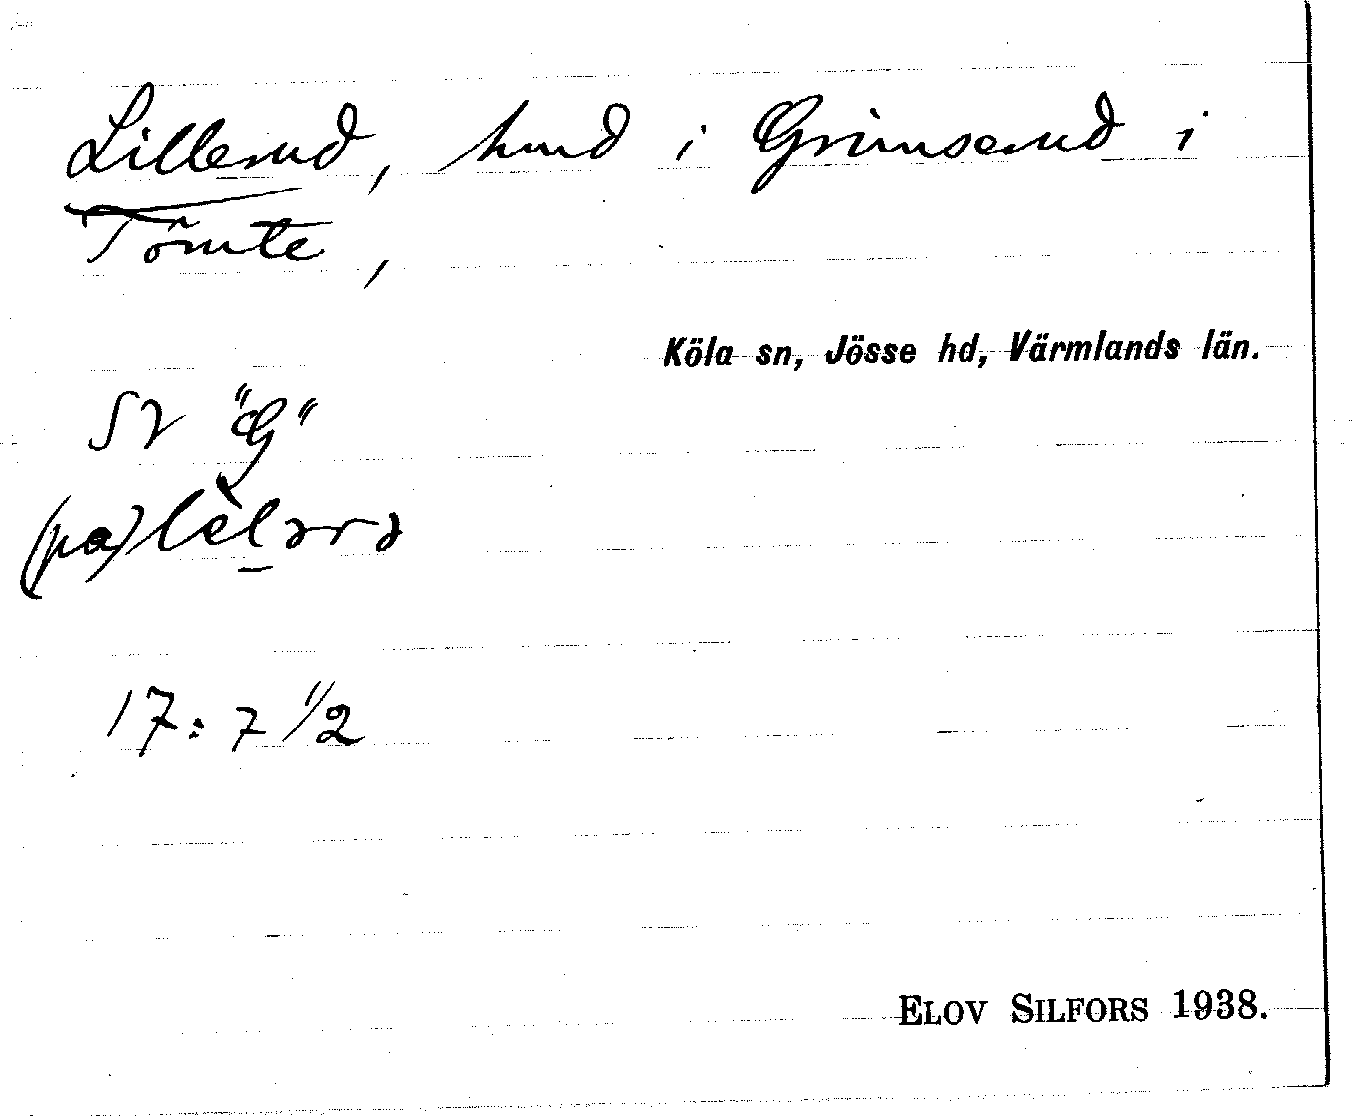 Lillerud, hmd i Grimserud i
Tömte,
Köla sn, Jösse hd, Värmlands län.
SV "G"
(pa)
17: 7 1/2
ELOV SILFORS 1938.